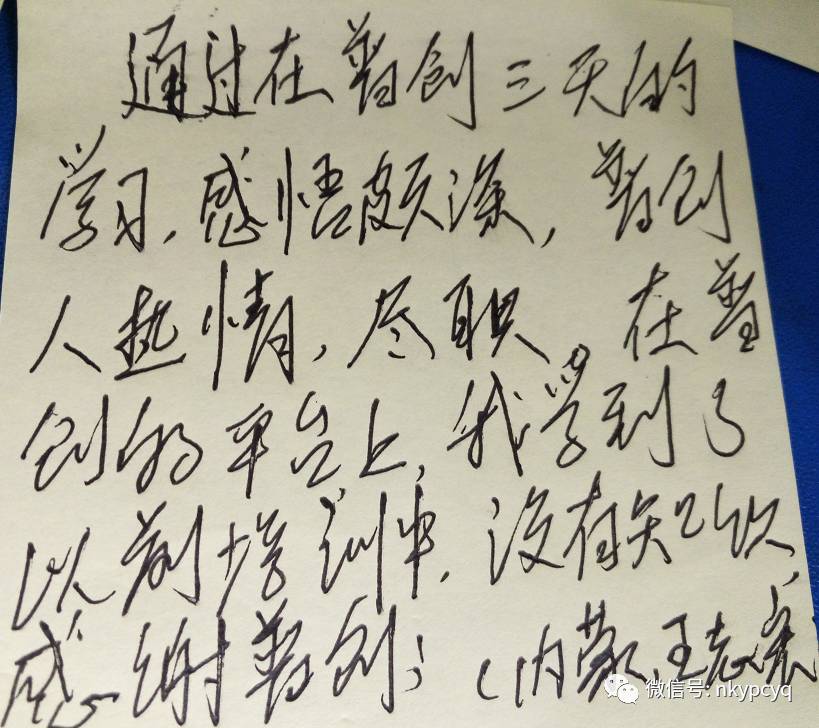 通过在普创三天的
学习,感悟颇深,普创
人热情,尽职。在普
创的平台上,我学到了
以前培训中,没有知识,
感谢普创;(内蒙、王志宏
微信号: nkypcyq